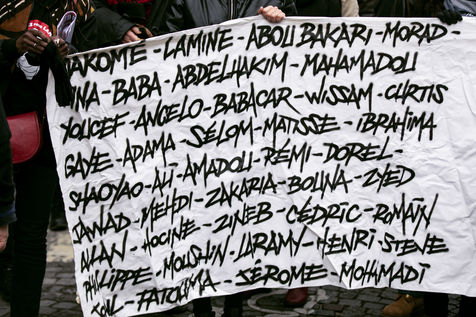 LAMINE - ABOU BAKARI - MORAD -
- BABA - ABDELHAKIM - MAHAMADOU
YOUCEF - ANGELO - BABACAR - WISSAM - CURTIS
GAYE - ADAMA - SÉLOM - MATISSE - IBRAHIMA
SHAOYAO - ALI - AMADOU - RÉMI - DOREL -
JAWAD - MEHDI - ZAKARIA - BOUNA - ZYED
ALLAN - HOCINE - ZINEB - CÉDRIC - ROMAIN
PHILIPPE - MOUSHIN - LARAMY - HENRI - STEVE
- FATOUMA - JÉROME - MOHAMADI